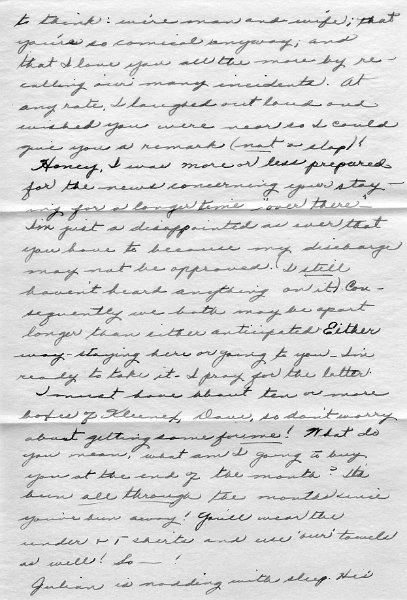 to think: we're man and wife; that
you're so comical anyway; and
that I love you all the more by re-
calling our many incidents. At
any rate, I laughed out loud and
wished you were near so I could
give you a remark (not a slap)!
Honey, I was more or less prepared
for the news concerning your stay-
ing for a longer time "over there"
I'm just a disappointed as ever that
you have to because my discharge
may not be approved. (I still
haven't heard anything on it) Con-
sequently we both may be apart
longer than either anticipated Either
way - staying here or going to you - I'm
ready to take it - I pray for the latter
I must have about ten or more
boxes of Kleenex, Dave, so don't worry
about getting some for me! What do
you mean, what am I going to buy
you at the end of the month? It's
been all through the months since
you've been away! You'll wear the
under & T-shirts and use 'our' towels
as well! So — !
Julian is nodding with sleep. His